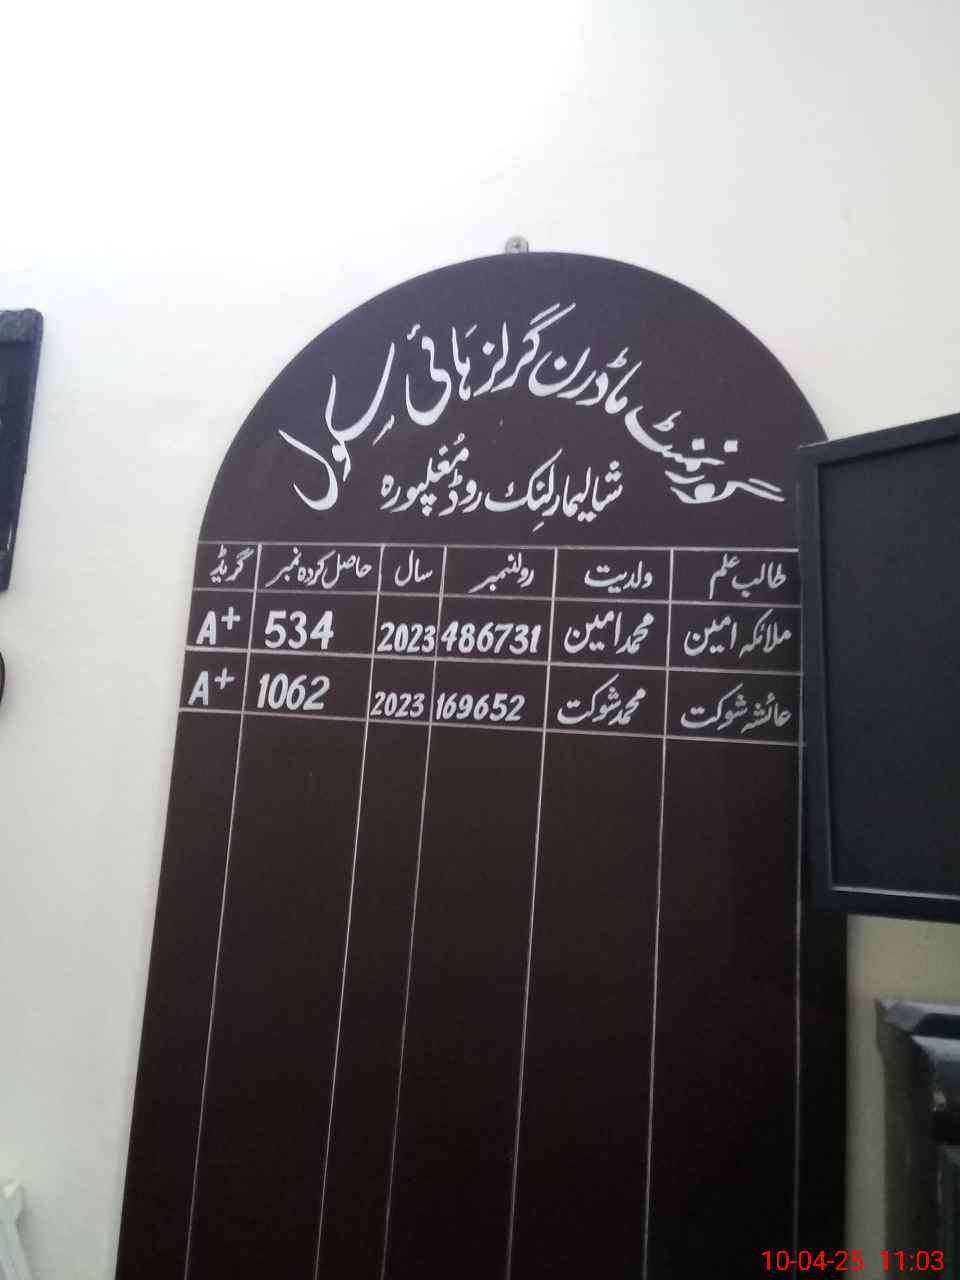 گورنمنٹ ماڈرن گرلز ہائی سکول
شالیمار لنک روڈ مغلپورہ
طالب علم ولدیت رولنمبر سال حاصل کردہ نمبر گریڈ
ملائکہ امین محمد امین 486731 2023 534 A+
عائشہ شوکت محمد شوکت 169652 2023 1062 A+
10-04-25 11:03